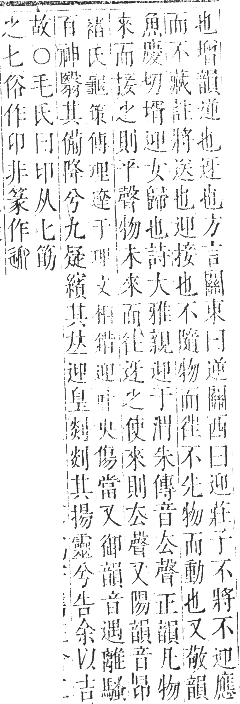 也增韻逆也迓也方言關東曰逆關西曰迎莊子不將不迎應
而不藏註將送也迎接也不隨物而往不先物而動也又敬韻
魚慶切壻迎女歸也詩大雅親迎于渭朱傳音厺聲正韻凡物
來而接之則平聲物未來而往迓之使來則厺聲又陽韻音昂
褚氏龜策傳理達于理文相錯迎叶央傷當又御韻音遇離騷
百神翳其備降兮九疑繽其𠀤迎皇剡剡其揚靈兮告余以吉
故○毛氏曰卬从匕節
之七俗作卬非篆作